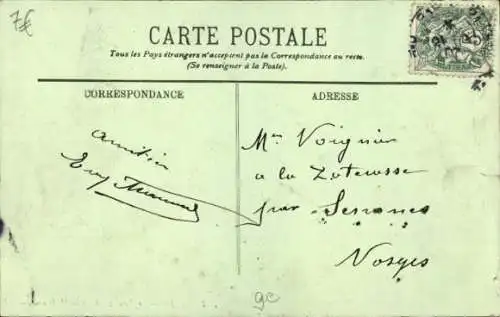 7€
CARTE POSTALE
Tous les Pays étrangers n'acceptent pas la Correspondance au recto.
(Se renseigner à la Poste).
CORRESPONDANCE
ADRESSE
Amitiés
Mr Voignier
à la
par Senones
Vosges
gc